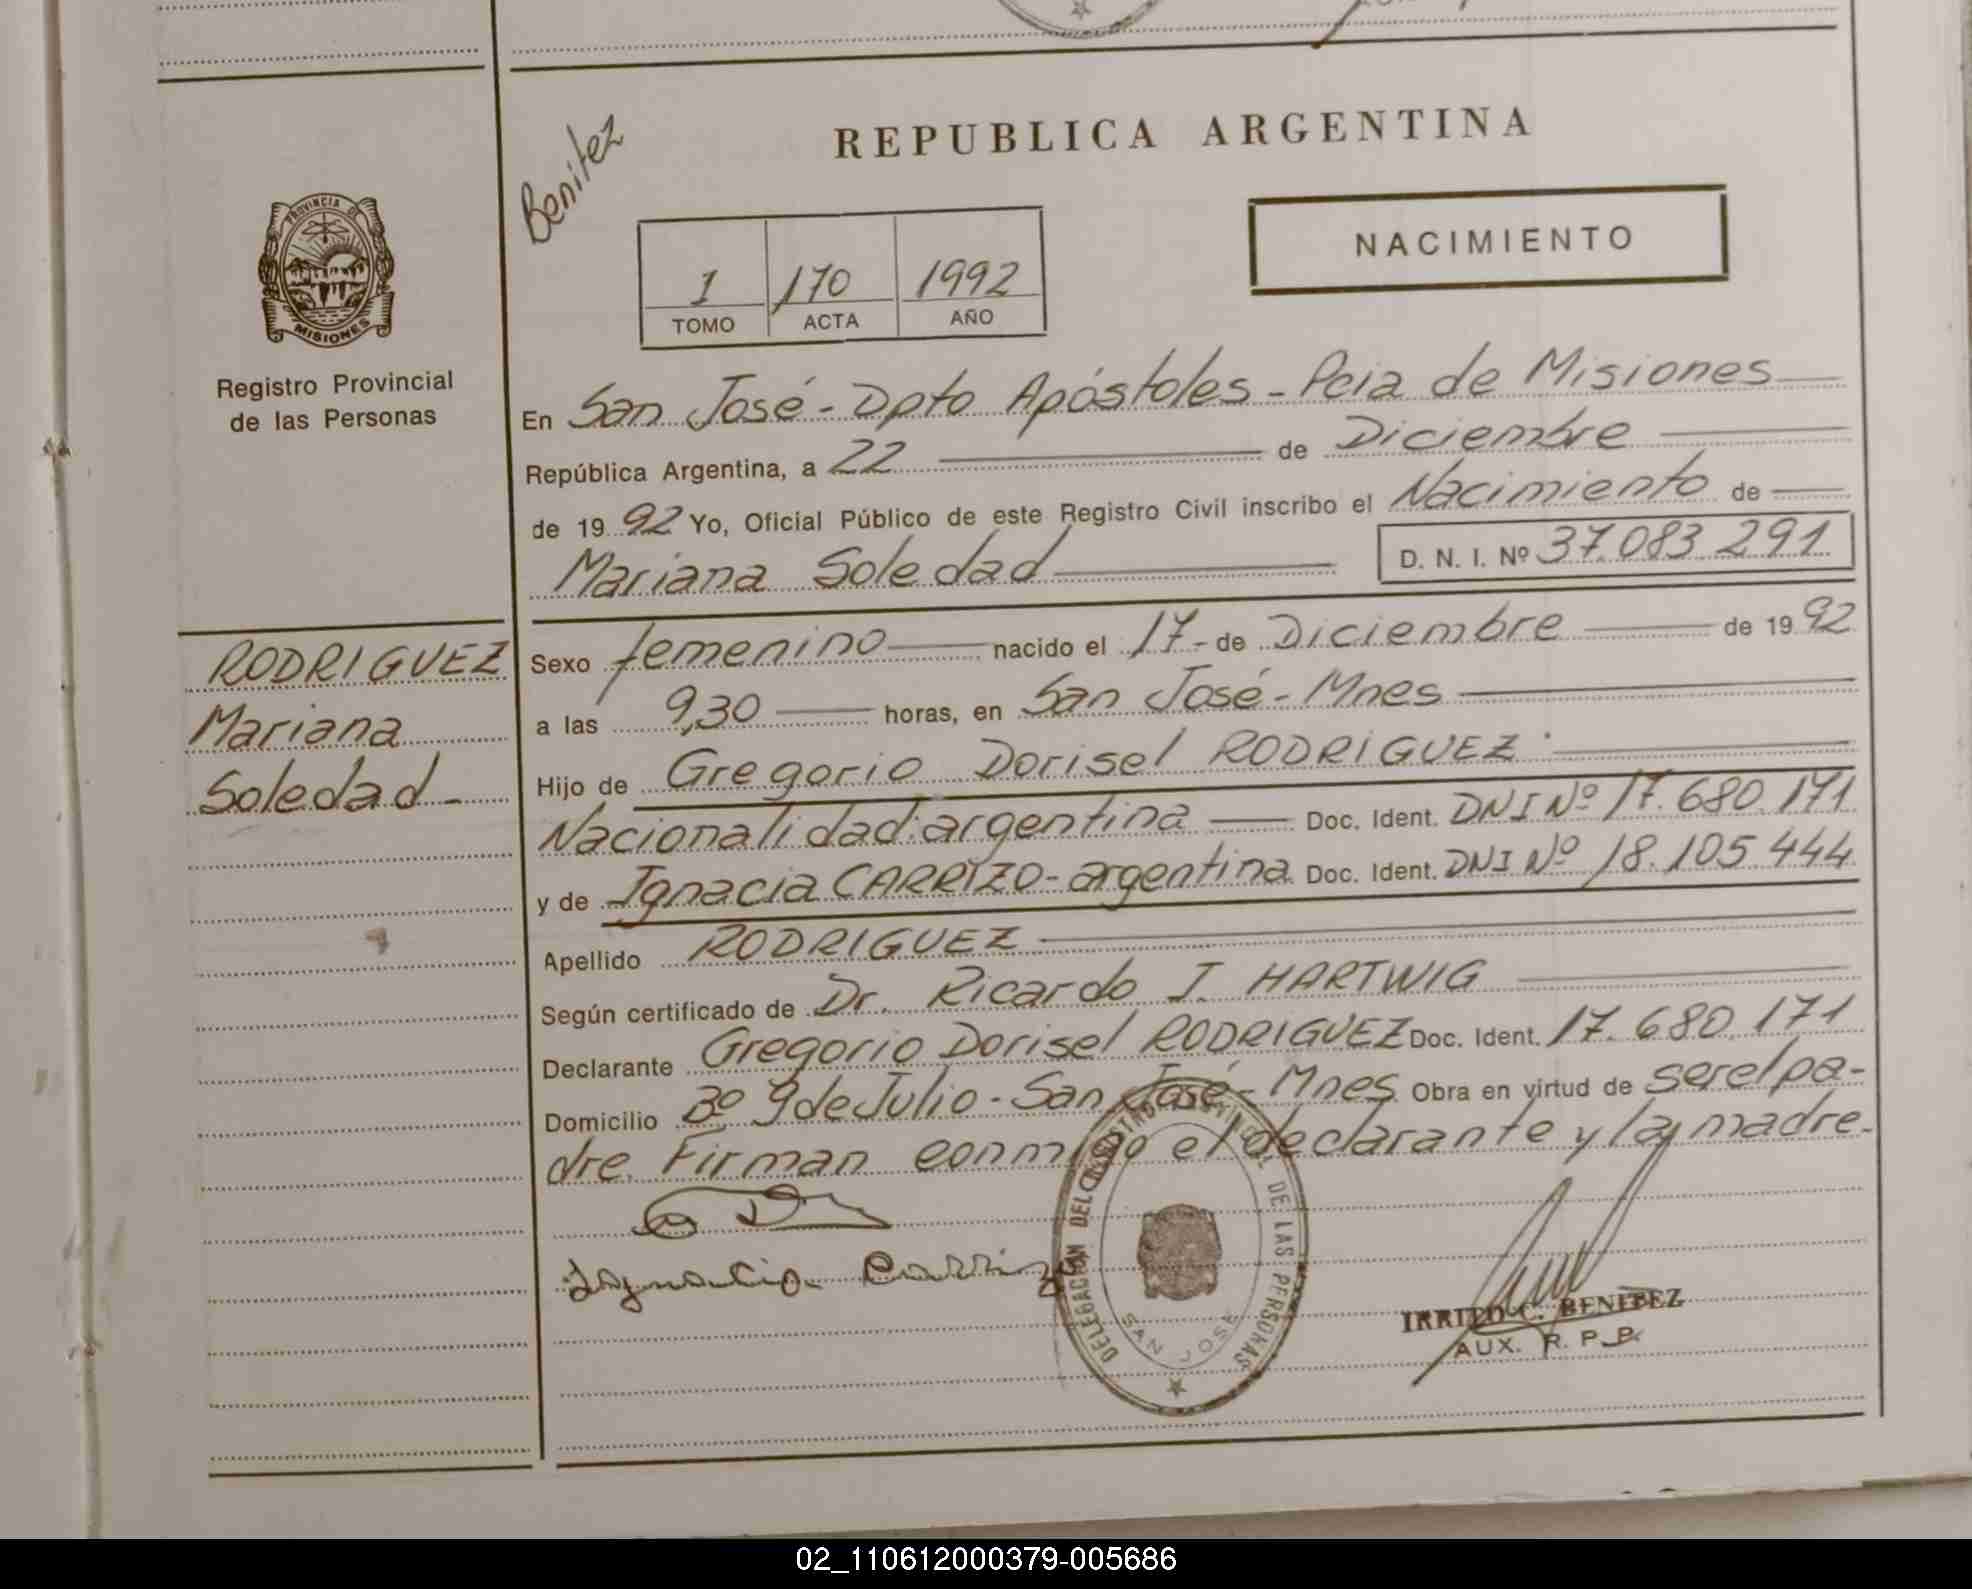 REPUBLICA ARGENTINA
Benitez
NACIMIENTO
1 170 1992
TOMO ACTA AÑO
PROVINCIA DE
MISIONES
Registro Provincial
de las Personas
RODRIGUEZ
Mariana
Soledad -
En San José - Dpto Apóstoles - Pcia de Misiones
República Argentina, a 22 de Diciembre
de 1992 Yo, Oficial Público de este Registro Civil inscribo el Nacimiento de
Mariana Soledad D. N. I. Nº 37.083 291
Sexo femenino nacido el 17 - de Diciembre de 1992
a las 9,30 horas, en San José - Mnes
Hijo de Gregorio Dorisel RODRIGUEZ
Nacionalidad: argentina Doc. Ident. DNI Nº 17.680.171
y de Ignacia CARRIZO - argentina Doc. Ident. DNI Nº 18.105.444
Apellido RODRIGUEZ
Según certificado de Dr. Ricardo I. HARTWIG
Declarante Gregorio Dorisel RODRIGUEZ Doc. Ident. 17.680.171
Domicilio Bº 9 de Julio - San José - Mnes Obra en virtud de ser el pa-
dre. Firman conmigo el declarante y la madre.
Ignacia Carrizo
DELEGACION DEL REGISTRO PROVINCIAL DE LAS PERSONAS
SAN JOSE
IRRITO C. BENITEZ
AUX. R. P. P.
02_110612000379-005686